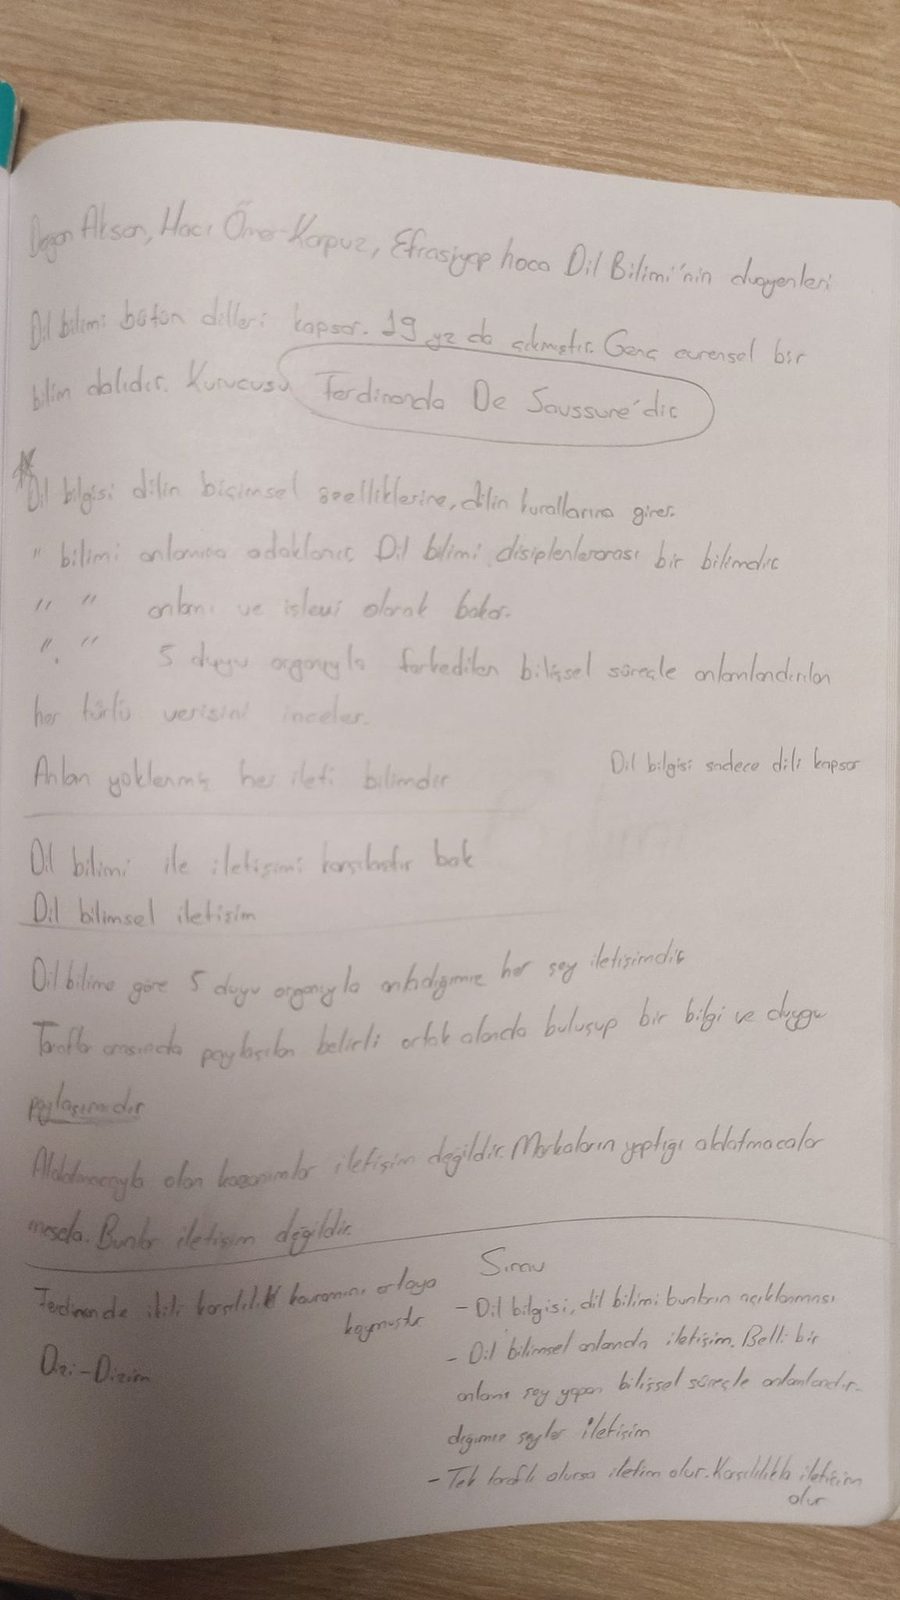 Doğan Aksan, Hacı Ömer Karpuz, Efrasiyap hoca Dil Bilimi'nin duayenleri
Dil bilimi bütün dilleri kapsar. 19 yz da çıkmıştır. Genç evrensel bir
bilim dalıdır. Kurucusu Ferdinanda De Saussure'dir
Dil bilgisi dilin biçimsel özelliklerine, dilin kurallarına girer.
" bilimi anlamına odaklanır. Dil bilimi disiplenlerarası bir bilimdir
" " anlamı ve işlevi olarak bakar.
" " 5 duyu organıyla farkedilen bilişsel süreçle anlamlandırılan
her türlü verisini inceler.
Anlam yüklenmiş her ileti bilimdir
Dil bilgisi sadece dili kapsar
Dil bilimi ile iletişimi karşılaştır bak
Dil bilimsel iletişim
Dil bilime göre 5 duyu organıyla anladığımız her şey iletişimdir
Taraflar arasında paylaşılan belirli ortak alanda buluşup bir bilgi ve duygu
paylaşımıdır
Aldatmacayla olan kazanımlar iletişim değildir. Markaların yaptığı aldatmacalar
mesela. Bunlar iletişim değildir.
Ferdinande ikili karşılılık kavramını ortaya
koymuştur
Dizi-Dizim
Sınav
- Dil bilgisi, dil bilimi bunların açıklanması
- Dil bilimsel anlamda iletişim. Belli bir
anlamı şey yapan bilişsel süreçle anlamlandır-
dığımız şeyler iletişim
- Tek taraflı olursa iletim olur. Karşılıklı iletişim
olur